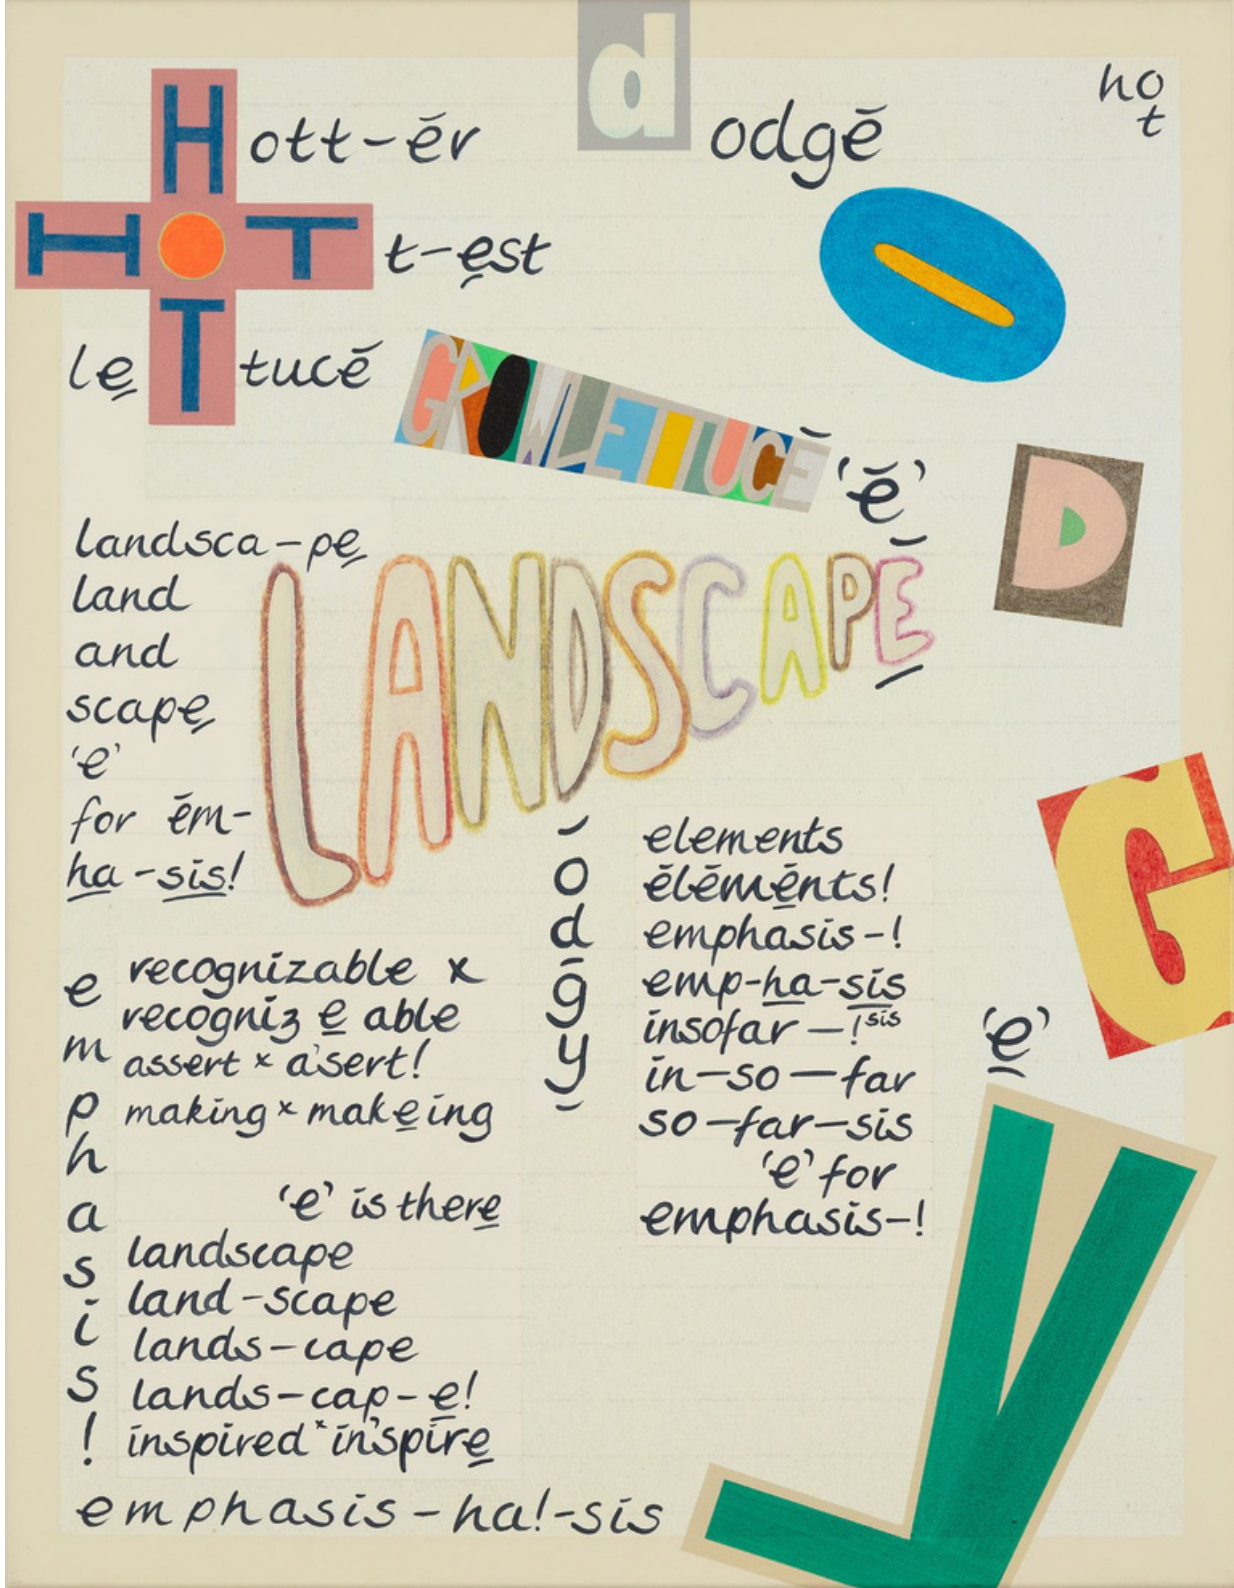 d
ho
t
H ott-ēr
odgē
HOT t-est
O
le T tucé
GROWLETTUCĒ
'ĕ'
D
landsca-pe
land
and
scape
'e'
for ēm-
ha-sis!
LANDSCAPE
G
o
d
g
y
elements
ēlēmēnts!
emphasis-!
emp-ha-sis
insofar-!sis
in-so-far
so-far-sis
'e' for
emphasis-!
'e'
y
e
m
p
h
a
s
i
s
!
recognizable x
recogniz e able
assert x a'sert!
making x makeing
'e' is there
landscape
land-scape
lands-cape
lands-cap-e!
inspired x in'spire
emphasis-ha!-sis